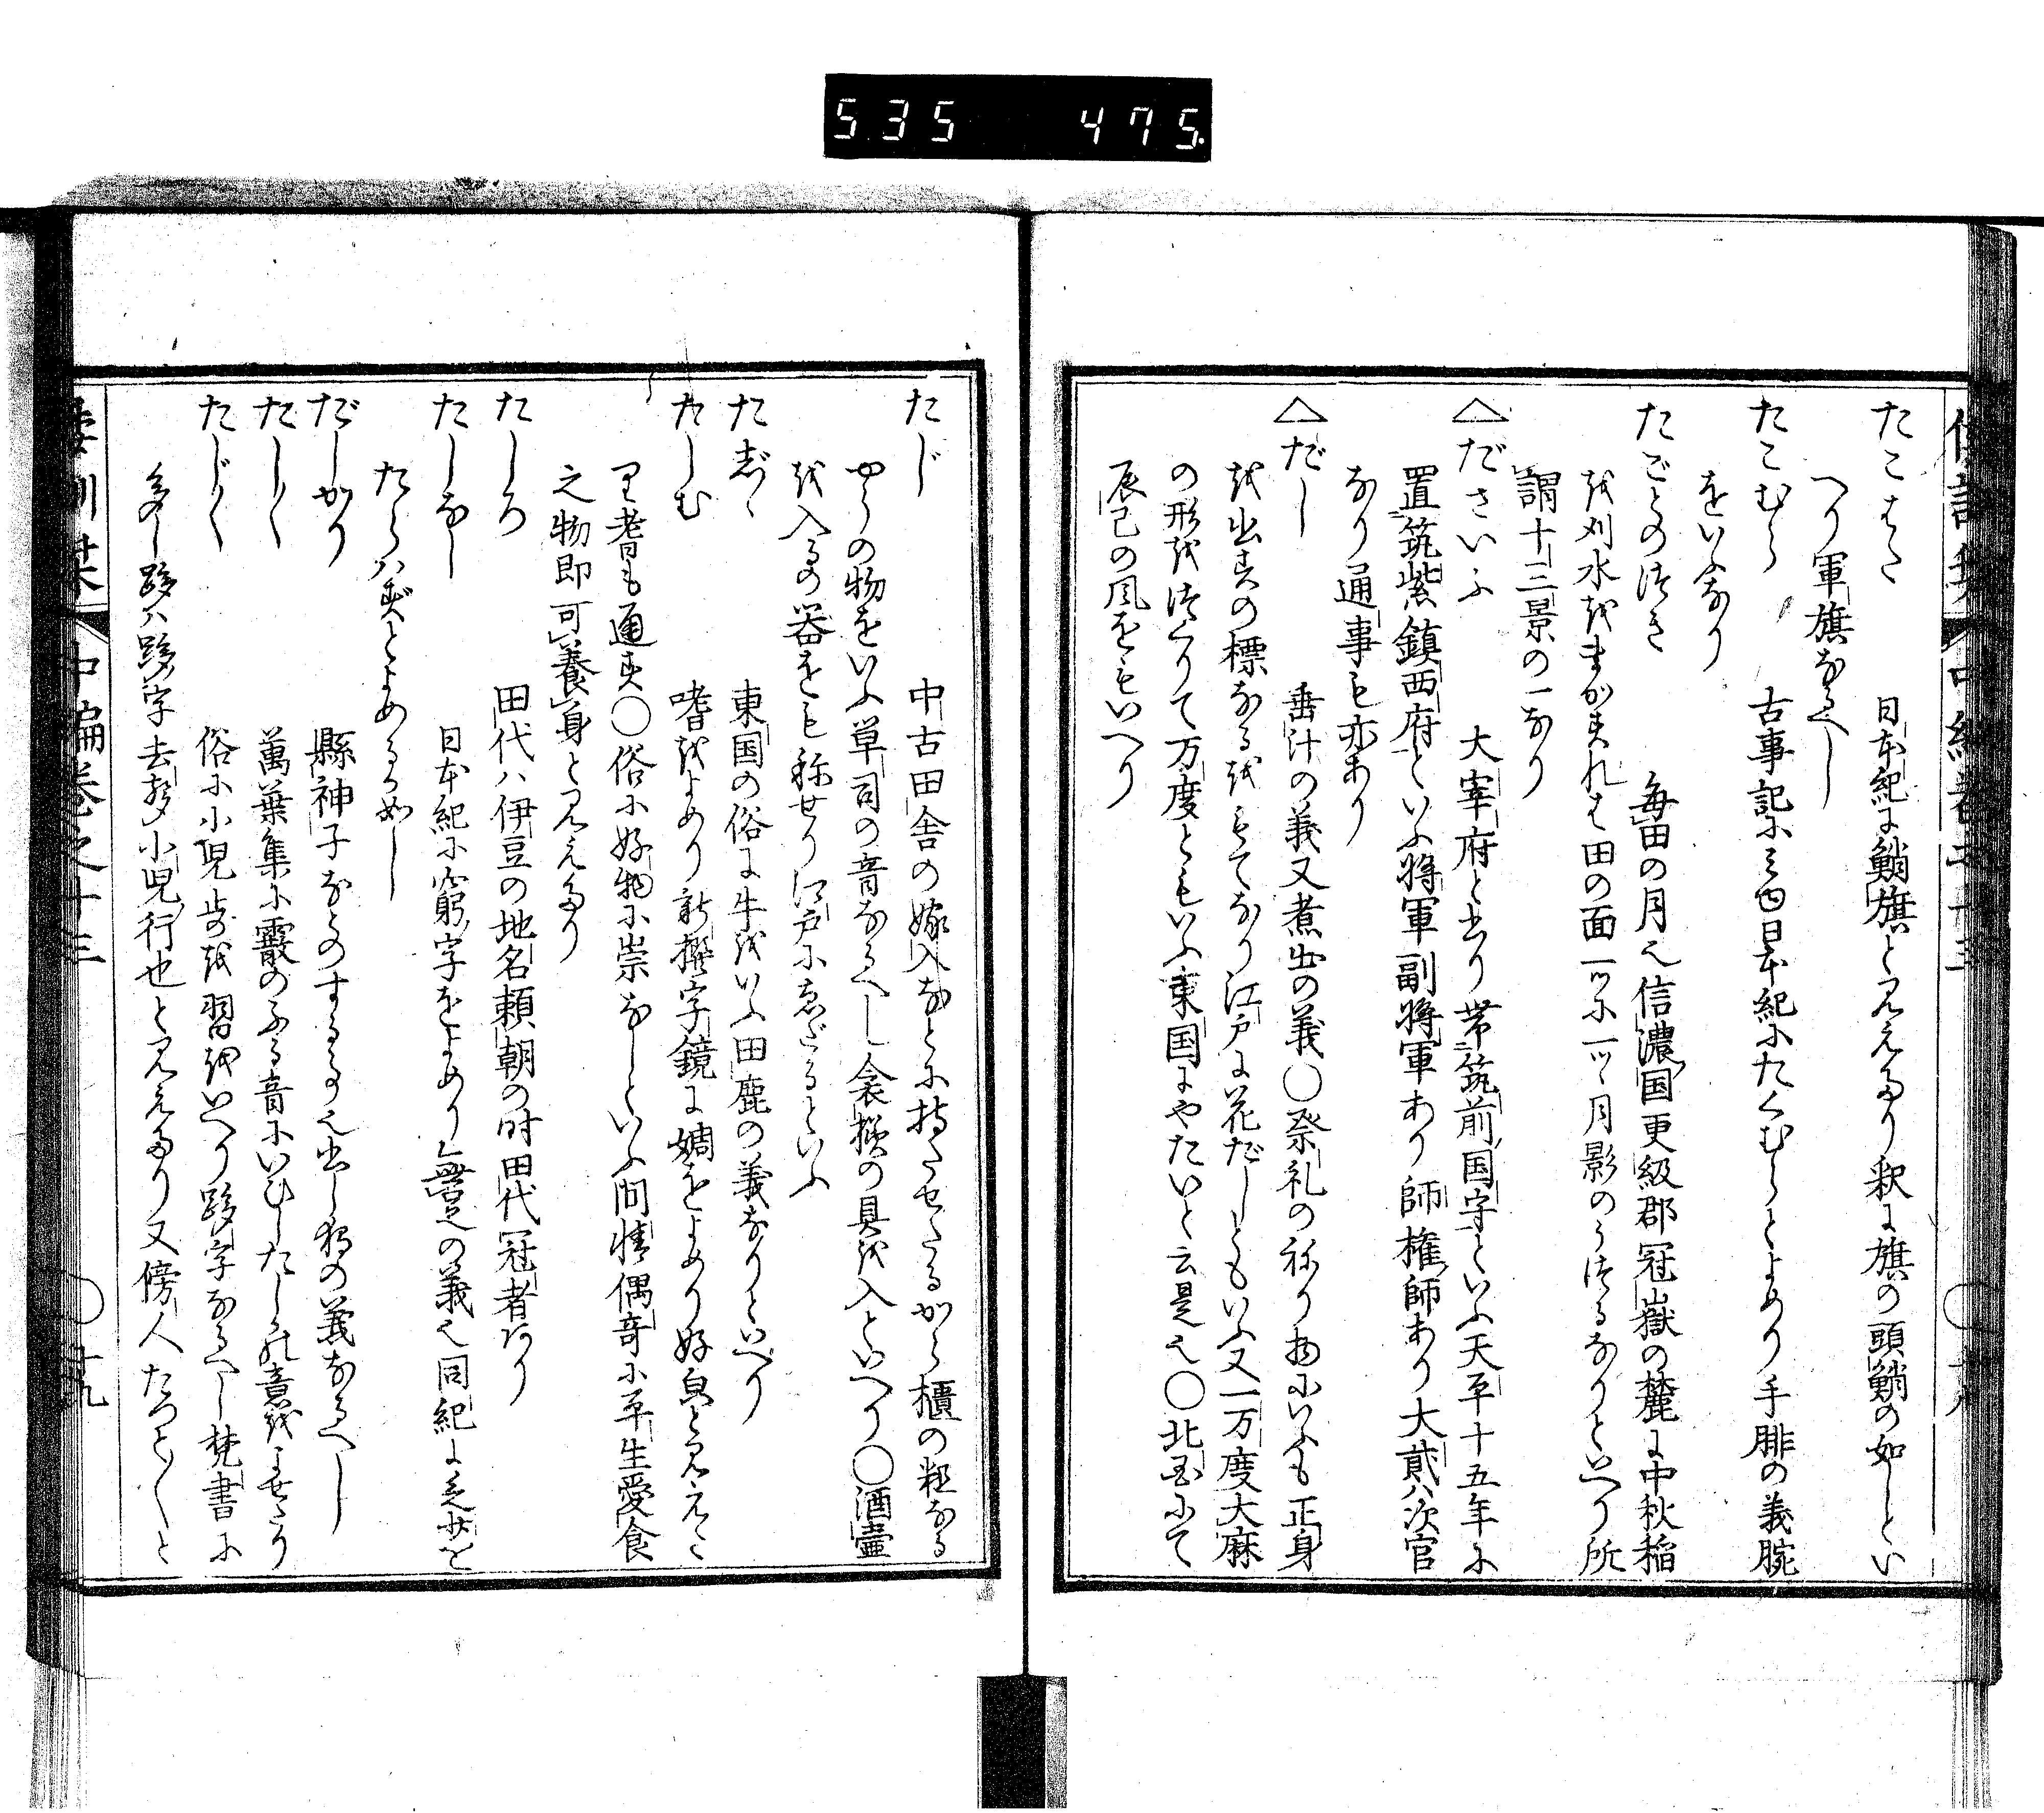 535 475
たこはた 日本紀に鱆旗と見えたり釈に旗の頭鱆の如しとい
へり軍旗なるへし
たこむら 古事記にみゆ日本紀にたくむらとよめり手腓の義腕
をいふなり
たごとのつき 毎田の月也信濃国更級郡冠嶽の麓に中秋稲
を刈水をまかすれは田の面一ツに一ツヽ月影のうつるなりといへり所
謂十三景の一なり
△ださいふ 大宰府と書り帯筑前国守といふ天平十五年に
置筑紫鎮西府といふ将軍副将軍あり師権師あり大貳ハ次官
なり通事も亦あり
△だし 垂汁の義又煮出の義〇祭礼のねり物にいふも正身
を出すの標なるをもてなり江戸に花だしともいふ又一万度大麻
の形をつくりて万度ともいふ東国にやたいと云是也〇北国にて
辰巳の風をもいへり
たじ 中古田舎の嫁入なとに持たせたるから櫃の粗なる
やうの物をいふ単司の音なるへし衾櫛の具を入といへり〇酒壷
を入るの器をも称せり江戸にゑだるといふ
たぢヽ 東国の俗に牛をいふ田鹿の義なりといへり
たしむ 嗜をよめり新撰字鏡に嫺をよめり好皃と見えた
り耆も通す〇俗に好物に崇なしといふ間情偶寄に平生愛食
之物即可養身と見えたり
たしろ 田代ハ伊豆の地名頼朝の時田代冠者あり
たしなし 日本紀に窮字をよめり無足の義也同紀に乏少を
たらハずとよめるか如し
だしかり 縣神子なとのするわさ也出し狩の義なるへし
たしヽ 萬葉集に霰のふる音にいひしたしかの意をよせたり
たじ〳〵 俗に小児歩を習をいへり跢字なるへし梵書に
多し跢ハ跢字去声小児行也と見えたり又傍人たつた〳〵と
倭訓栞 中編巻之十三 〇十九